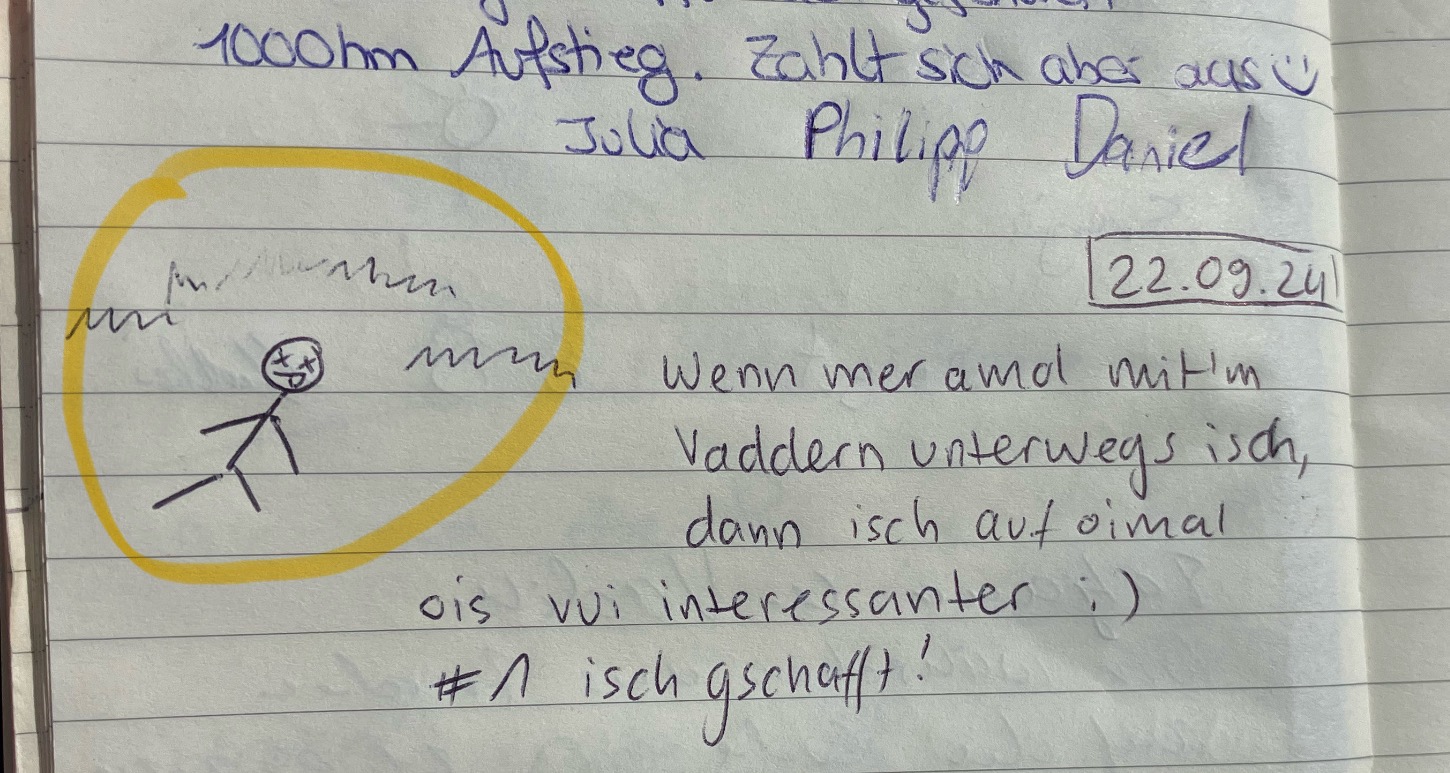 1000hm Aufstieg. Zahlt sich aber aus
Julia Philipp Daniel
22.09.24
Wenn mer amol mit'm
Vaddern unterwegs isch,
dann isch auf oimal
ois vui interessanter ;)
#1 isch gschafft!